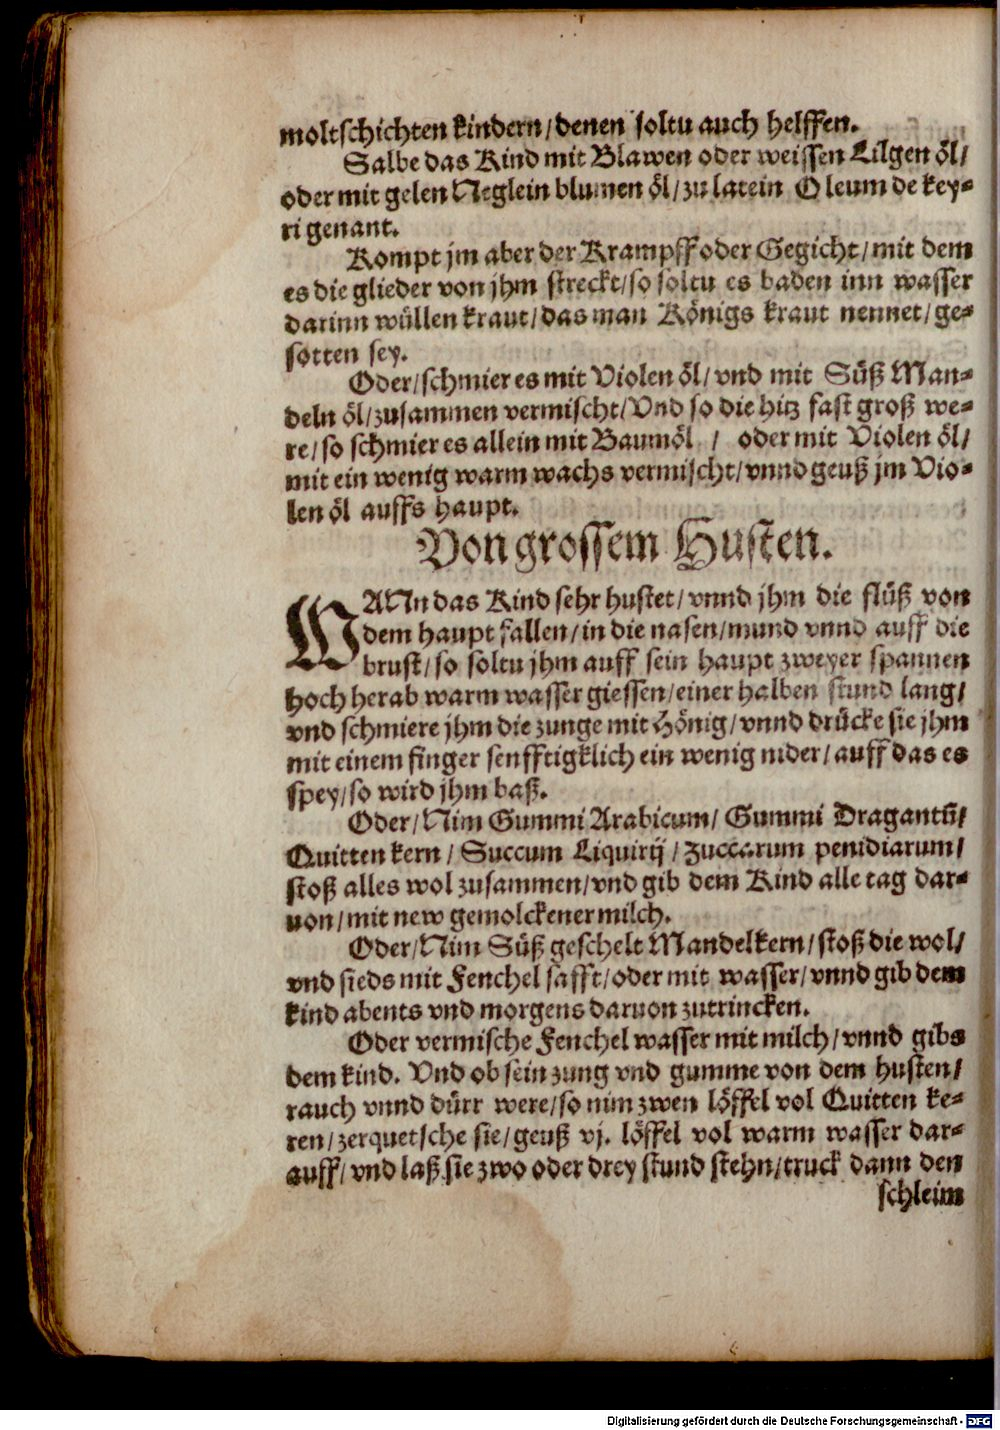 moltschichten kindern/denen soltu auch helffen.
Salbe das Kind mit Blawen oder weissen Lilgen öl/
oder mit gelen Neglein blumen öl/zu latein Oleum de key-
ri genant.
Kompt jm aber der Krampff oder Gegicht/mit dem
es die glieder von jhm streckt/so soltu es baden inn wasser
darinn wüllen kraut/das man Königs kraut nennet/ge-
sotten sey.
Oder/schmier es mit Violen öl/vnd mit Süß Man-
deln öl/zusammen vermischt/Vnd so die hitz fast groß we-
re/so schmier es allein mit Baumöl / oder mit Violen öl/
mit ein wenig warm wachs vermischt/vnnd geuß jm Vio-
len öl auffs haupt.
Von grossem Husten.
WANn das Kind sehr hustet/vnnd jhm die flüß von
dem haupt fallen/in die nasen/mund vnnd auff die
brust/so soltu jhm auff sein haupt zweyer spannen
hoch herab warm wasser giessen/einer halben stund lang/
vnd schmiere jhm die zunge mit Hönig/vnnd drücke sie jhm
mit einem finger senfftigklich ein wenig nider/auff das es
spey/so wird jhm baß.
Oder/Nim Gummi Arabicum/Gummi Dragantū/
Quitten kern/Succum Liquirij/Zuccarum penidiarum/
stoß alles wol zusammen/vnd gib dem Kind alle tag dar-
uon/mit new gemolckener milch.
Oder/Nim Süß geschelt Mandelkern/stoß die wol/
vnd sieds mit Fenchel safft/oder mit wasser/vnnd gib dem
kind abents vnd morgens daruon zutrincken.
Oder vermische Fenchel wasser mit milch/vnnd gibs
dem kind. Vnd ob sein zung vnd gumme von dem husten/
rauch vnnd dürr were/so nim zwen löffel vol Quitten ke-
ren/zerquetsche sie/geuß vj. löffel vol warm wasser dar-
auff/vnd laß sie zwo oder drey stund stehn/truck dann den
schleim
Digitalisierung gefördert durch die Deutsche Forschungsgemeinschaft - DFG